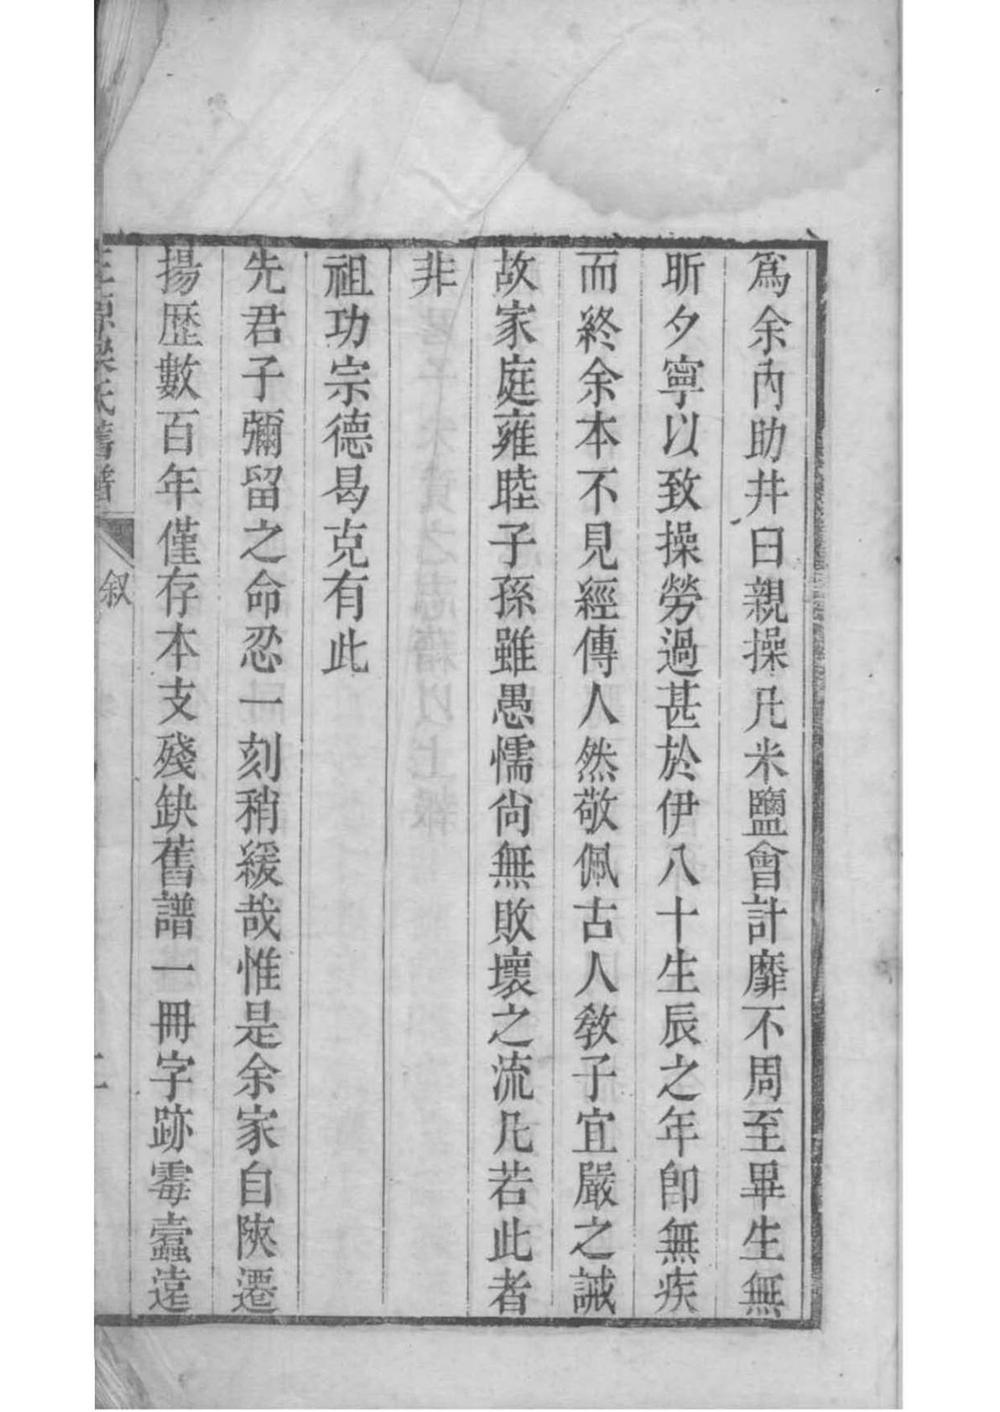 爲余內助井臼親操凡米鹽會計靡不周至畢生無
昕夕寧以致操勞過甚於伊八十生辰之年卽無疾
而終余本不見經傳人然敬佩古人敎子宜嚴之誡
故家庭雍睦子孫雖愚懦尙無敗壞之流凡若此者
非
祖功宗德曷克有此
先君子彌留之命忍一刻稍緩哉惟是余家自陝遷
揚歷數百年僅存本支殘缺舊譜一冊字跡霉蠹遠
氏舊譜
叙